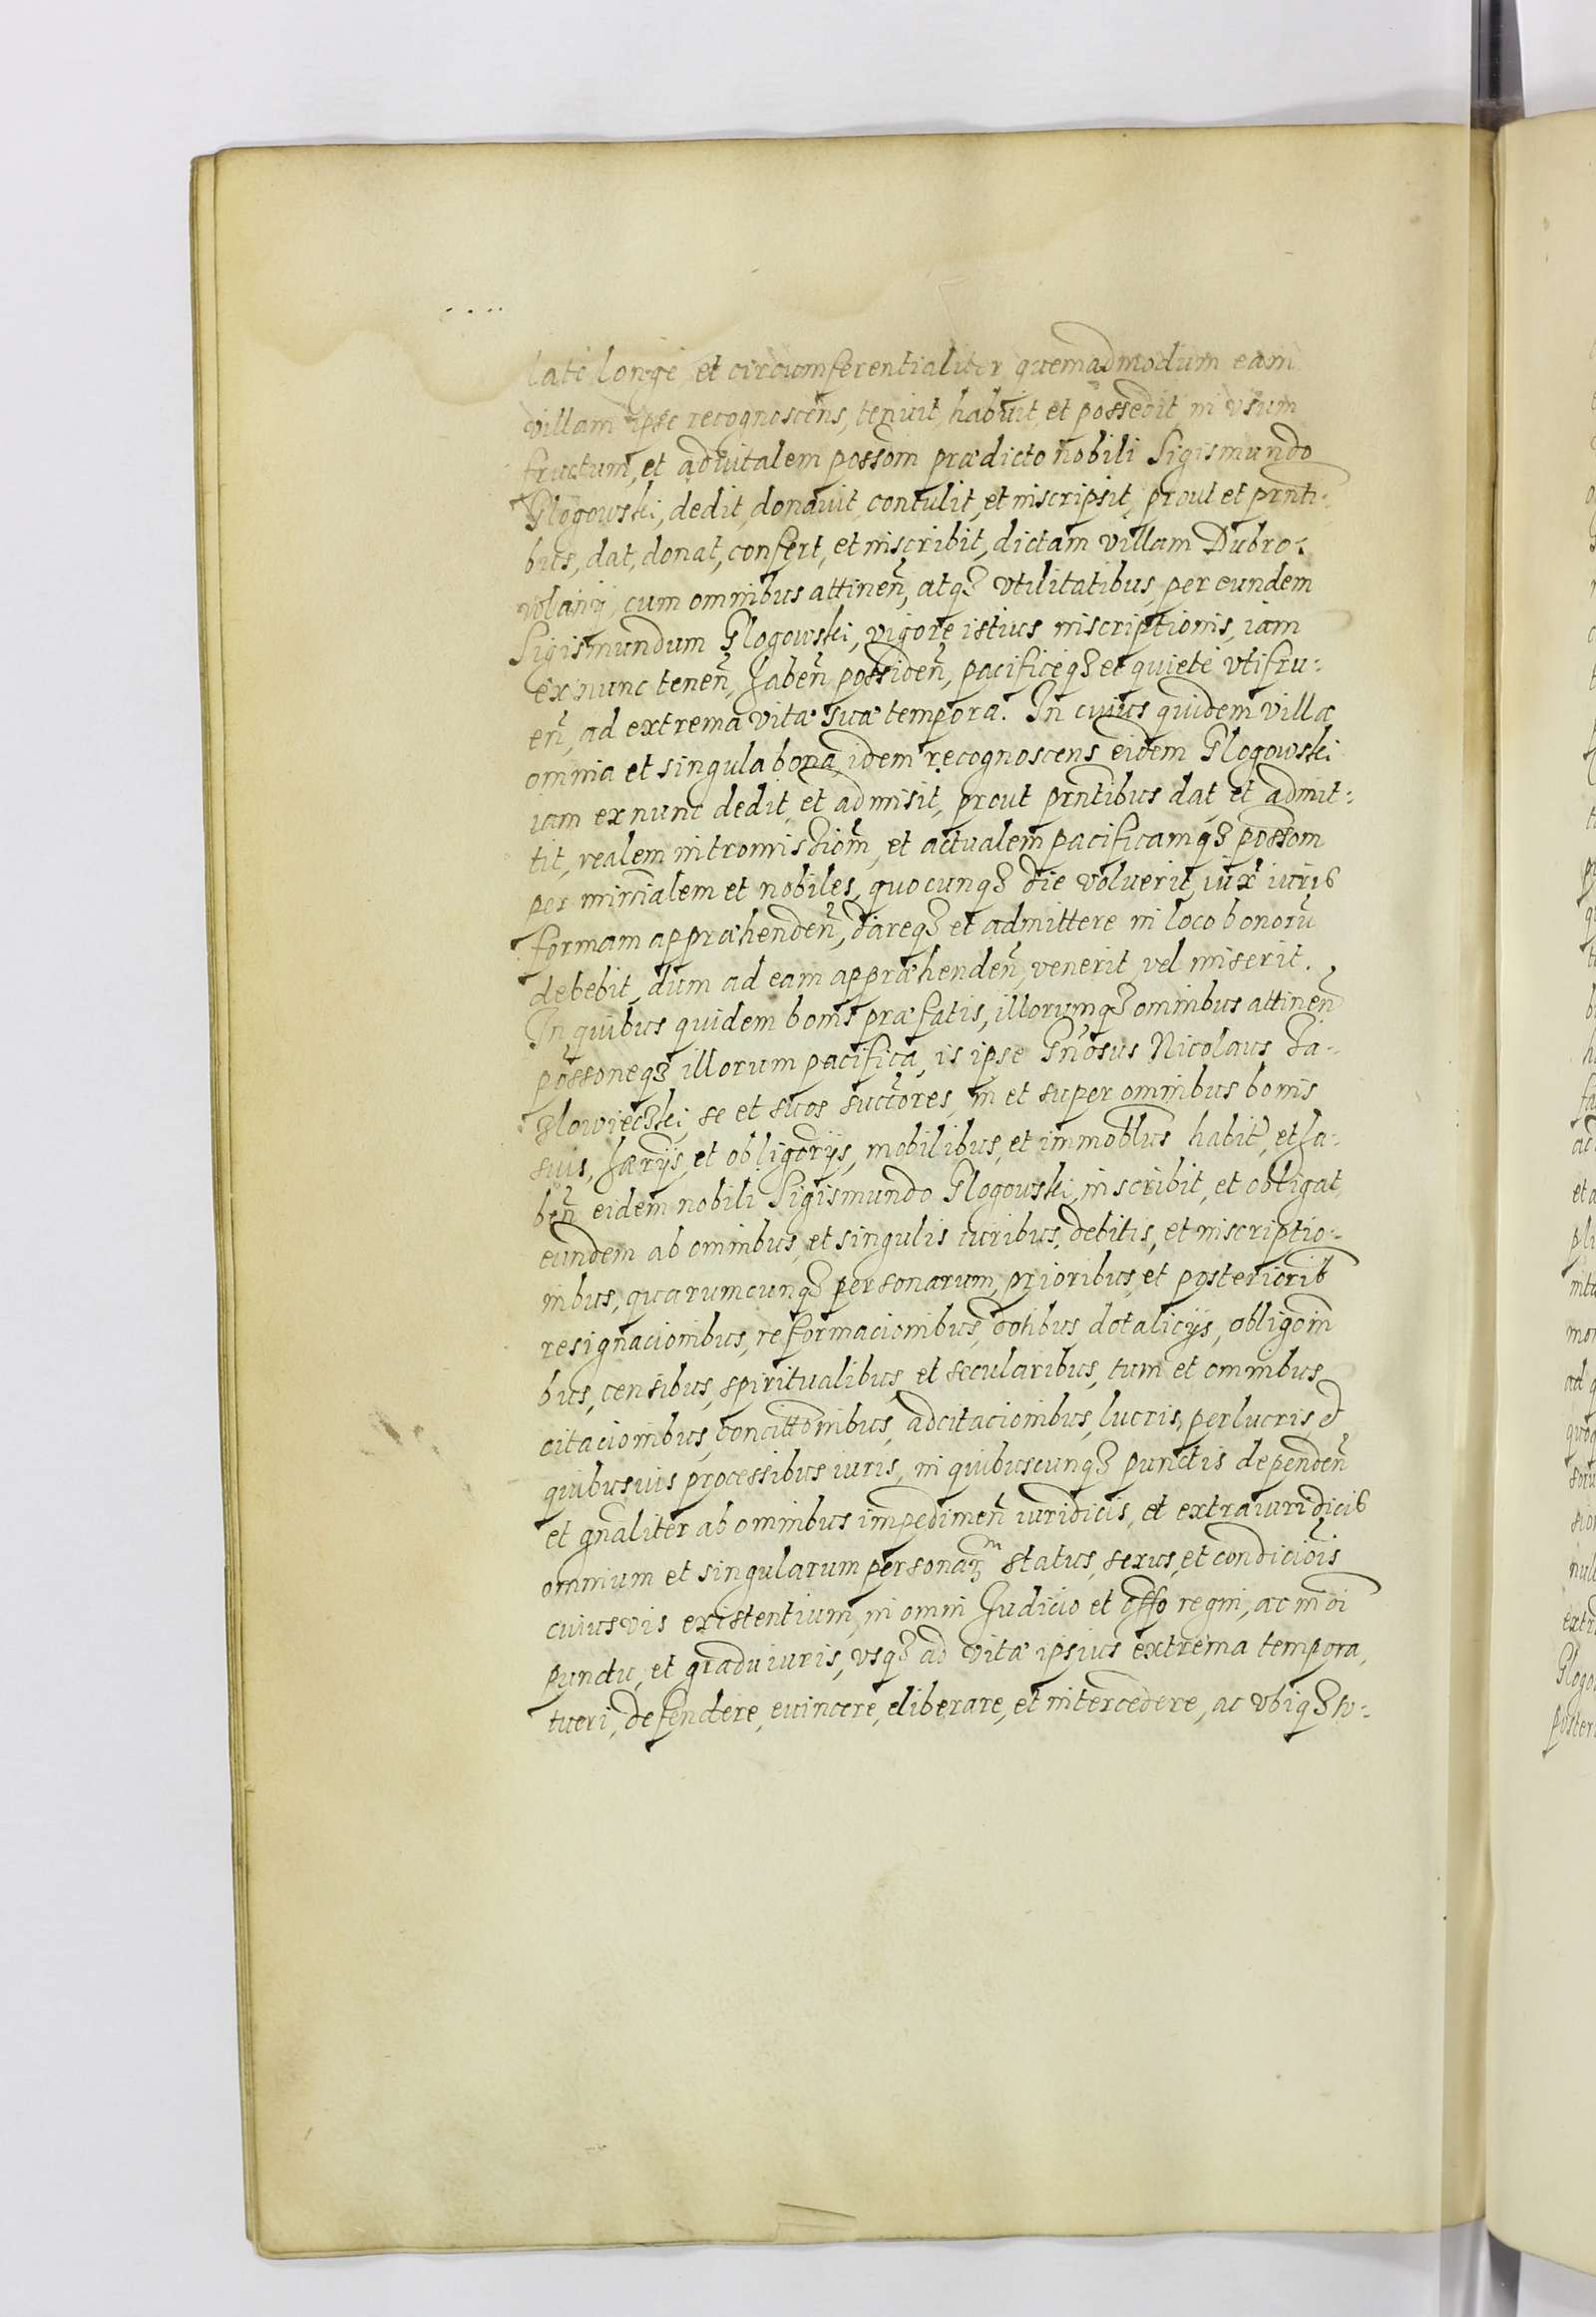 late longe et circumferentialiter quemadmodum eam
villam ipse recognoscens, tenuit, habuit, et possedit, in vsum
fructum, et aduitalem possom prædicto nobili Sigismundo
Glogowski, dedit, donauit, contulit, et inscripsit, prout et prnti:
bus, dat, donat, confert, et inscribit, dictam villam Dubro:
cum omnibus attinen, atq3 vtilitatibus, per eundem
Sigismundum Glogowski, vigore istius inscriptionis, iam
ex nunc tenen, haben possiden, pacificeq3 et quiete vtifru:
en, ad extrema vitæ suæ tempora. In cuius quidem villæ
omnia et singula bona, idem recognoscens eidem Glogowski
iam ex nunc dedit, et admisit, prout prntibus dat et admit:
tit, realem intromissiom, et actualem pacificamq3 possom
per minrialem et nobiles, quocunq3 die voluerit, iux iuris
formam appræhenden, dareq3 et admittere in loco bonoru
debebit, dum ad eam appræhenden, venerit, vel miserit.
In quibus quidem bonis præfatis, illorumq3 omnibus attinen
possoneq3 illorum pacifica, is ipse Gnosus Nicolaus Ja:
zlowieczki, se et suos succores, in et super omnibus bonis
suis, hærijs, et obligorijs, mobilibus, et immoblbus habit, et ha:
ben eidem nobili Sigismundo Glogowski, inscribit, et obligat
eundem ab omnibus, et singulis iuribus, debitis, et inscriptio:
nibus, quarumcunq3 personarum, prioribus, et posteriorib
resignacionibus, reformacionibus, dotibus dotalicijs, obligoni
bus, censibus, spiritualibus, et secularibus, tum et omnibus
citacionibus, concittonibus, adcitacionibus, lucris, perlucris, et
quibusuis processibus iuris, in quibuscunq3 punctis dependen
et gnaliter ab omnibus impedimen iuridicis, et extraiuridicis
omnium et singularum personar status, sexus, et condicionis
cuiusvis existentium, in omni Judicio et offo regni, ac in oi
punctu, et gradu iuris, vsq3 ad vitæ ipsius extrema tempora,
tueri, defendere, euincere, eliberare, et intercedere, ac vbiq3 su: